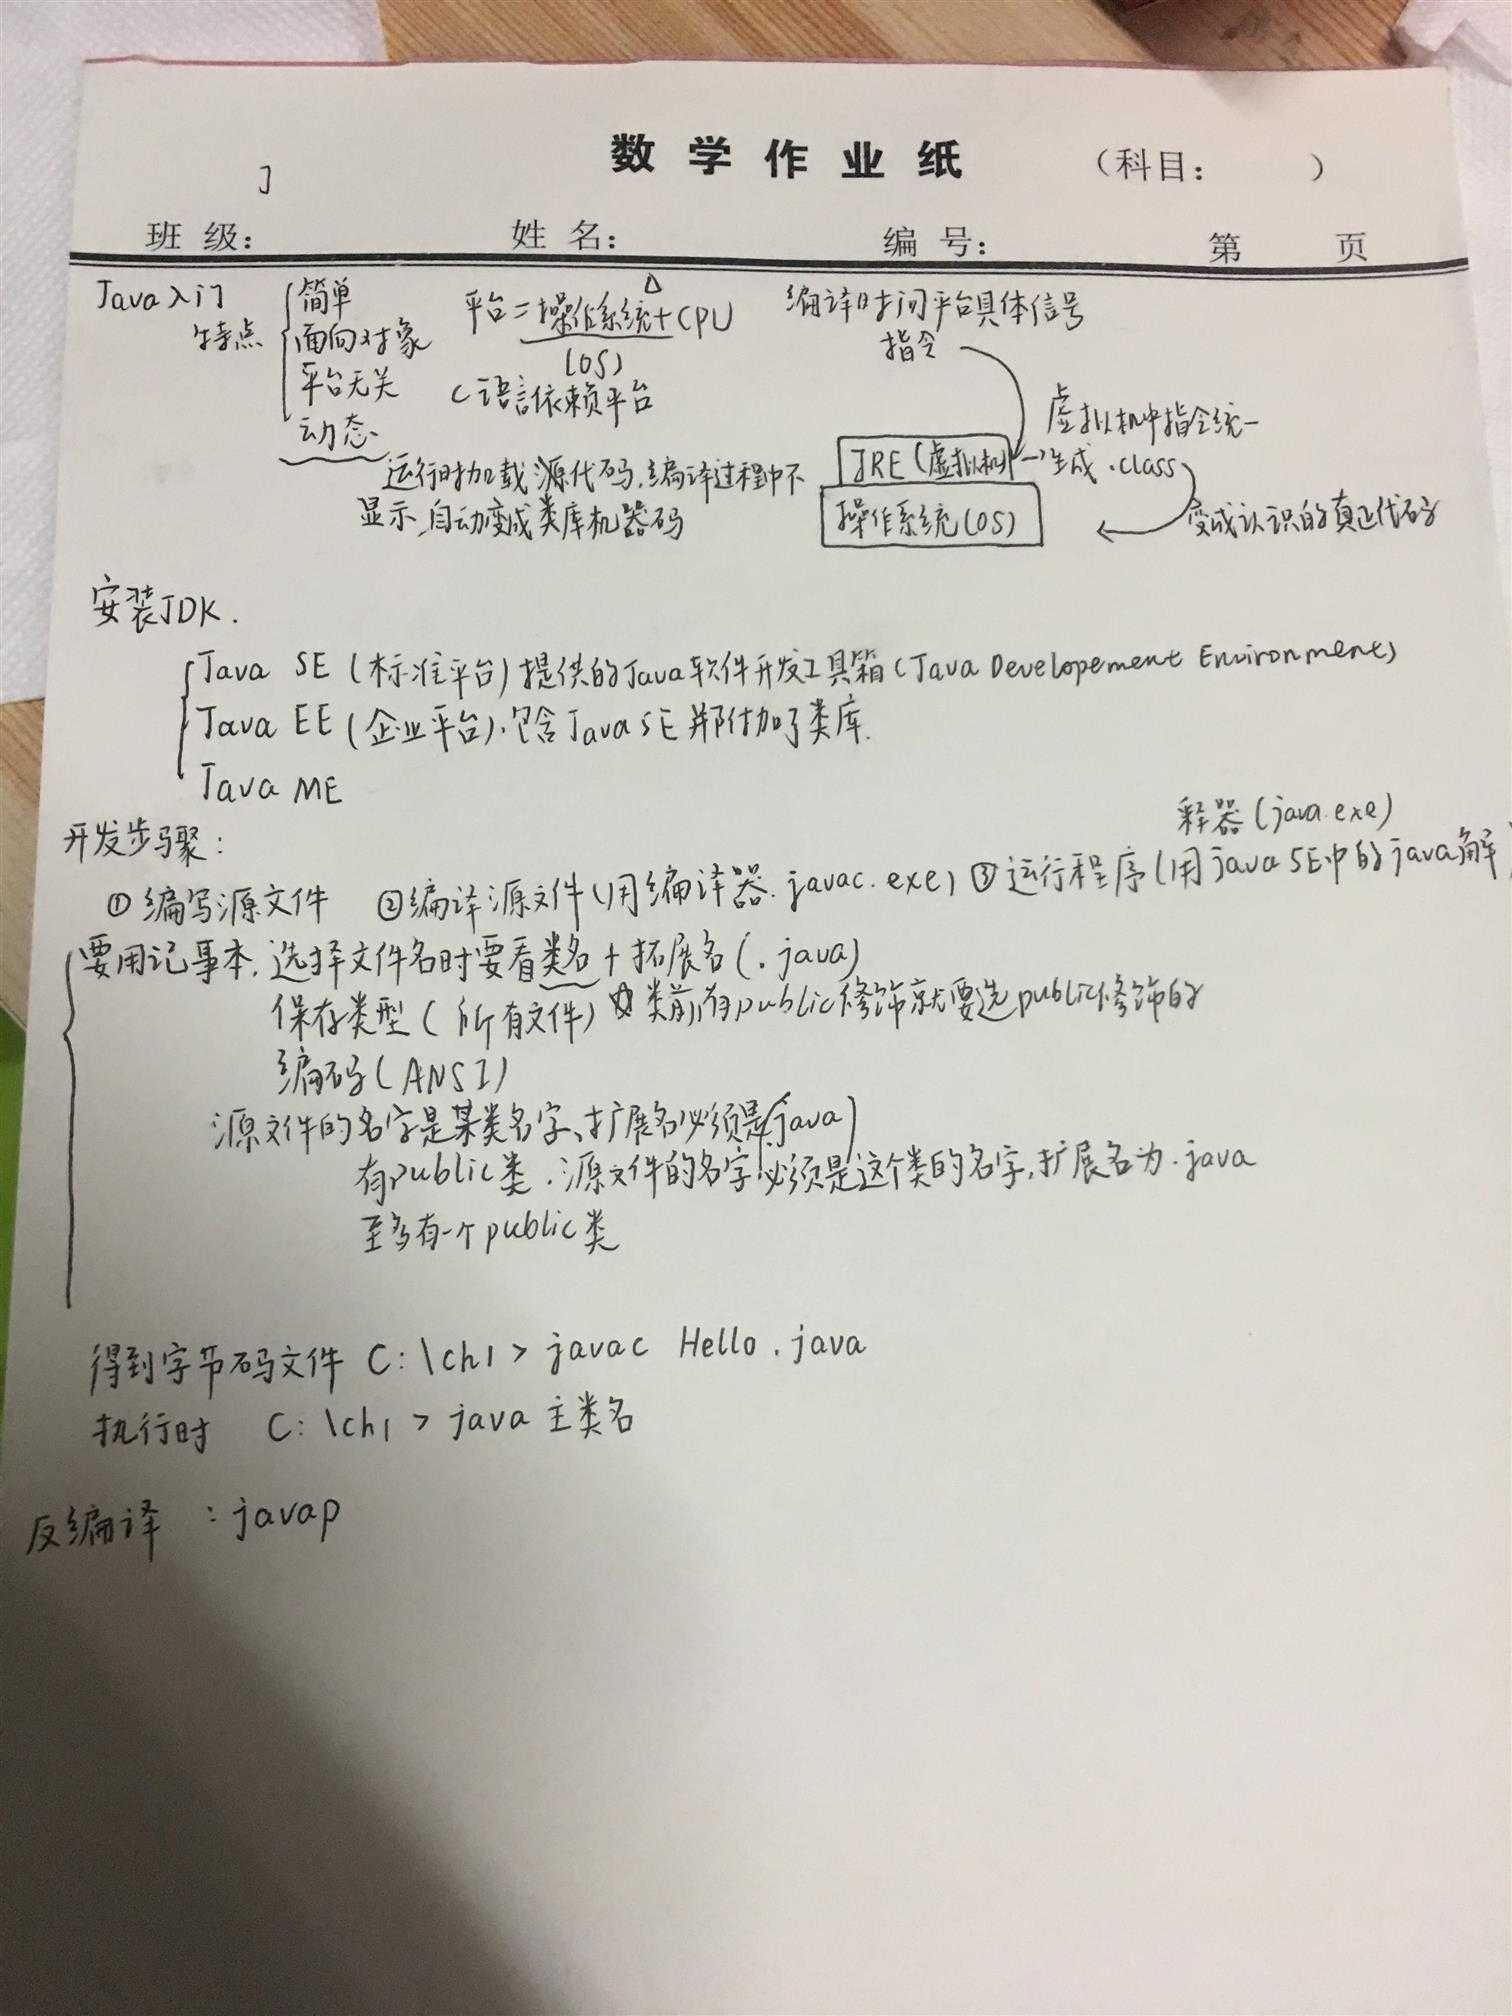 数学作业纸 （科目： ）
J
班级： 姓名： 编号： 第 页
Java入门
特点
简单
面向对象
平台无关
动态
平台=操作系统+CPU
(OS)
C语言依赖平台
运行时加载源代码,编译过程中不
显示,自动变成类库机器码
编译时问平台具体信号
指令
虚拟机中指令统一
JRE(虚拟机)→生成.class
操作系统(OS)
变成认识的真正代码
安装JDK.
Java SE (标准平台)提供的Java软件开发工具箱(Java Developement Environment)
Java EE (企业平台).包含Java SE并附加了类库.
Java ME
开发步骤:
释器(java.exe)
①编写源文件 ②编译源文件(用编译器.javac.exe) ③运行程序(用java SE中的java解
要用记事本,选择文件名时要看类名+拓展名(.java)
保存类型(所有文件) 类前有public修饰就要选public修饰的
编码(ANSI)
源文件的名字是某类名字、扩展名必须是.java
有public类.源文件的名字必须是这个类的名字,扩展名为.java
至多有一个public类
得到字节码文件 C:\ch1> javac Hello.java
执行时 C:\ch1> java 主类名
反编译 :javap